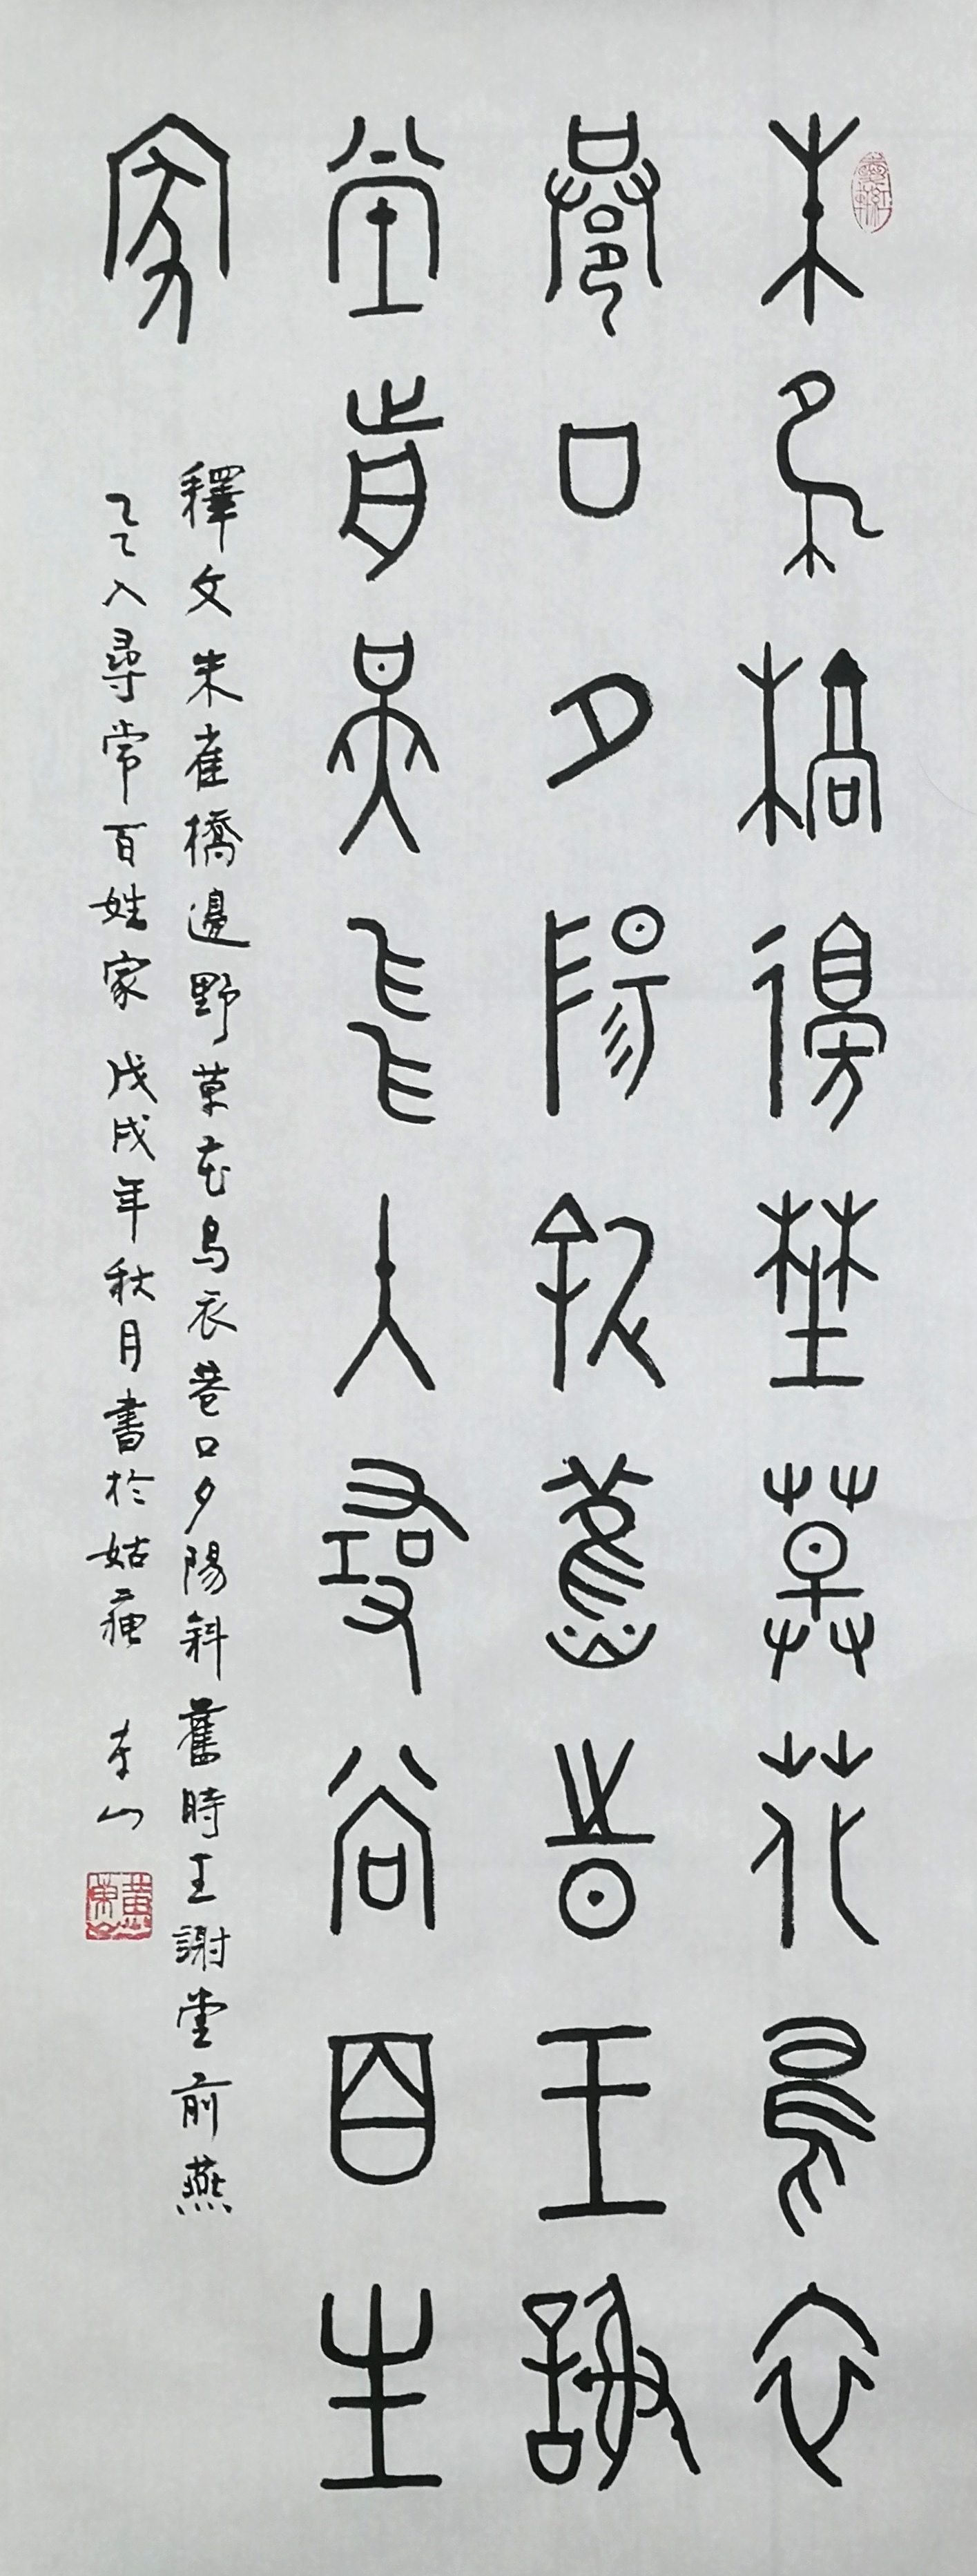 朱雀橋邊野草花烏衣
巷口夕陽斜舊時王謝
堂前燕飛入尋常百姓
家
釋文朱雀橋邊野草花烏衣巷口夕陽斜舊時王謝堂前燕
飛入尋常百姓家 戊戌年秋月書於姑蘇 東山
黄東山